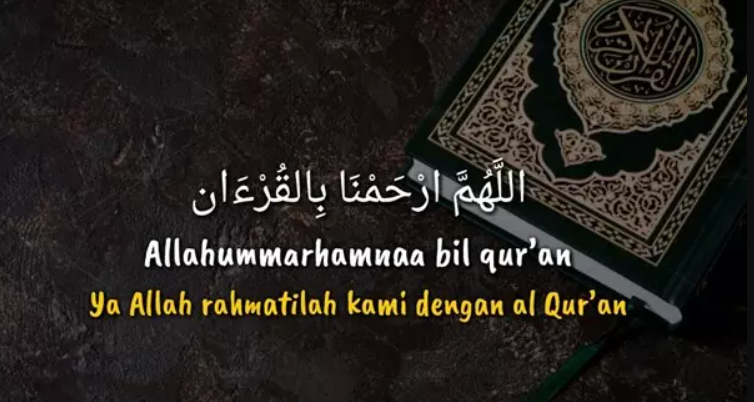 القرآن الكريم
اللَّهُمَّ ارْحَمْنَا بِالقُرْءَان
Allahummarhamnaa bil qur'an
Ya Allah rahmatilah kami dengan al Qur'an